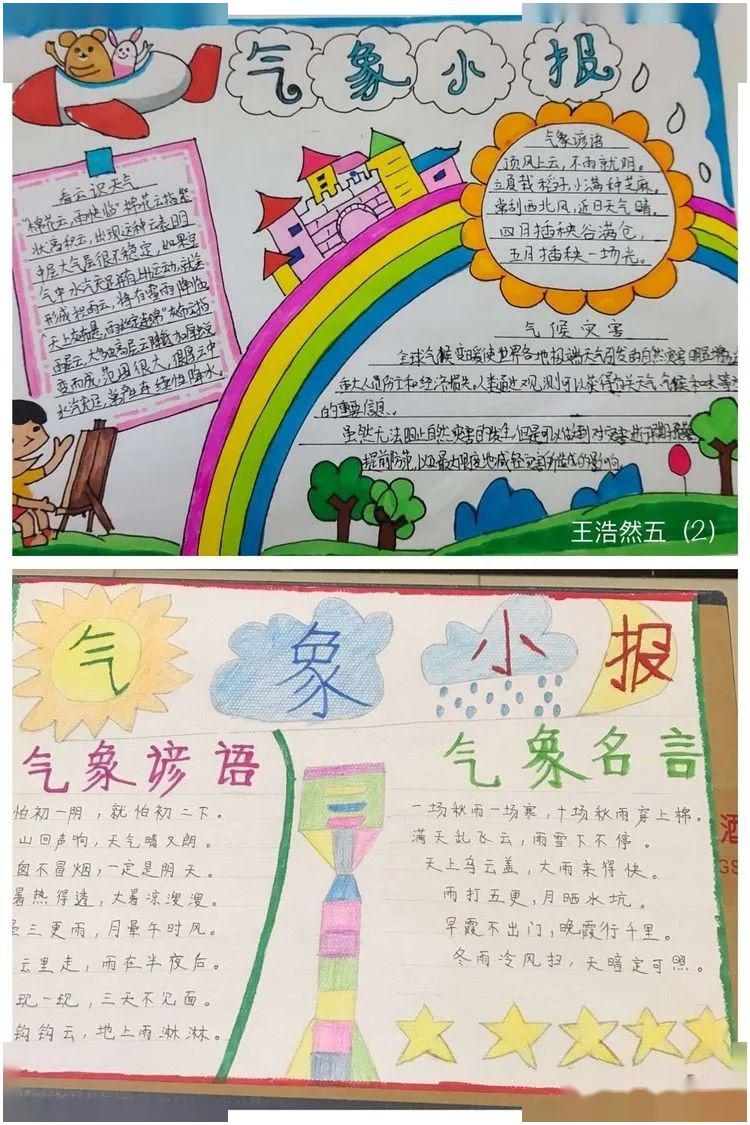 气象小报
看云识天气
"棉花云,雨快临"棉花云指絮
状高积云,出现这种云表明
中层大气层很不稳定,如果空
气中水汽充足并有上升运动,就会
形成积雨云,将有雷雨降临
变而成,范围很大,很厚云中
水汽充足,常产生连续性降水。
气象谚语
顶风上云,不雨就阴。
立夏栽稻子,小满种芝麻。
常刮西北风,近日天气晴。
四月插秧谷满仓,
五月插秧一场光。
气候灾害
全球气候变暖使世界各地极端天气引发的自然灾害明显增
重大人员伤亡和经济损失。人类通过观测可以获得有关天气气候和
的重要信息。
虽然无法阻止自然灾害的发生,但是可以做到对灾害进行
提前防范,以最大限度地减轻灾害所造成的影响。
王浩然五(2)
气象小报
气象谚语
怕初一阴,就怕初二下。
山回声响,天气晴又朗。
囱不冒烟,一定是阴天。
暑热得透,大暑凉溲溲。
三更雨,月晕午时风。
云里走,雨在半夜后。
现一现,三天不见面。
钩钩云,地上雨淋淋。
气象名言
一场秋雨一场寒,十场秋雨穿上棉。
满天乱飞云,雨雪下不停。
天上乌云盖,大雨来得快。
雨打五更,月晒水坑。
早霞不出门,晚霞行千里。
冬雨冷风扫,天暗定可照。
酒
GS